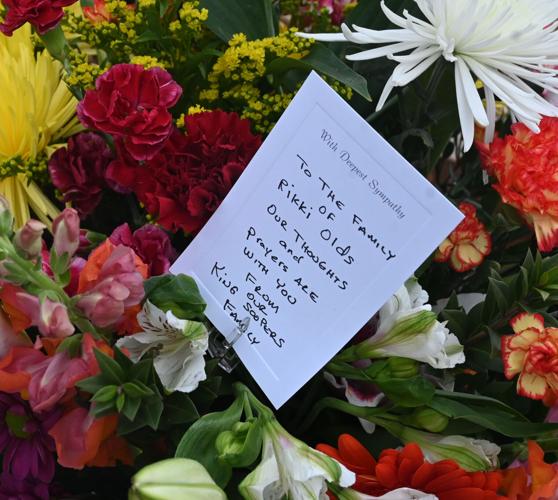 With Deepest Sympathy
To THE FAMILY
Rikki OF Olds
OUR THOUGHTS
and
prayers ARE
WITH YOU
FROM
OUR
King SOOPERS
Family